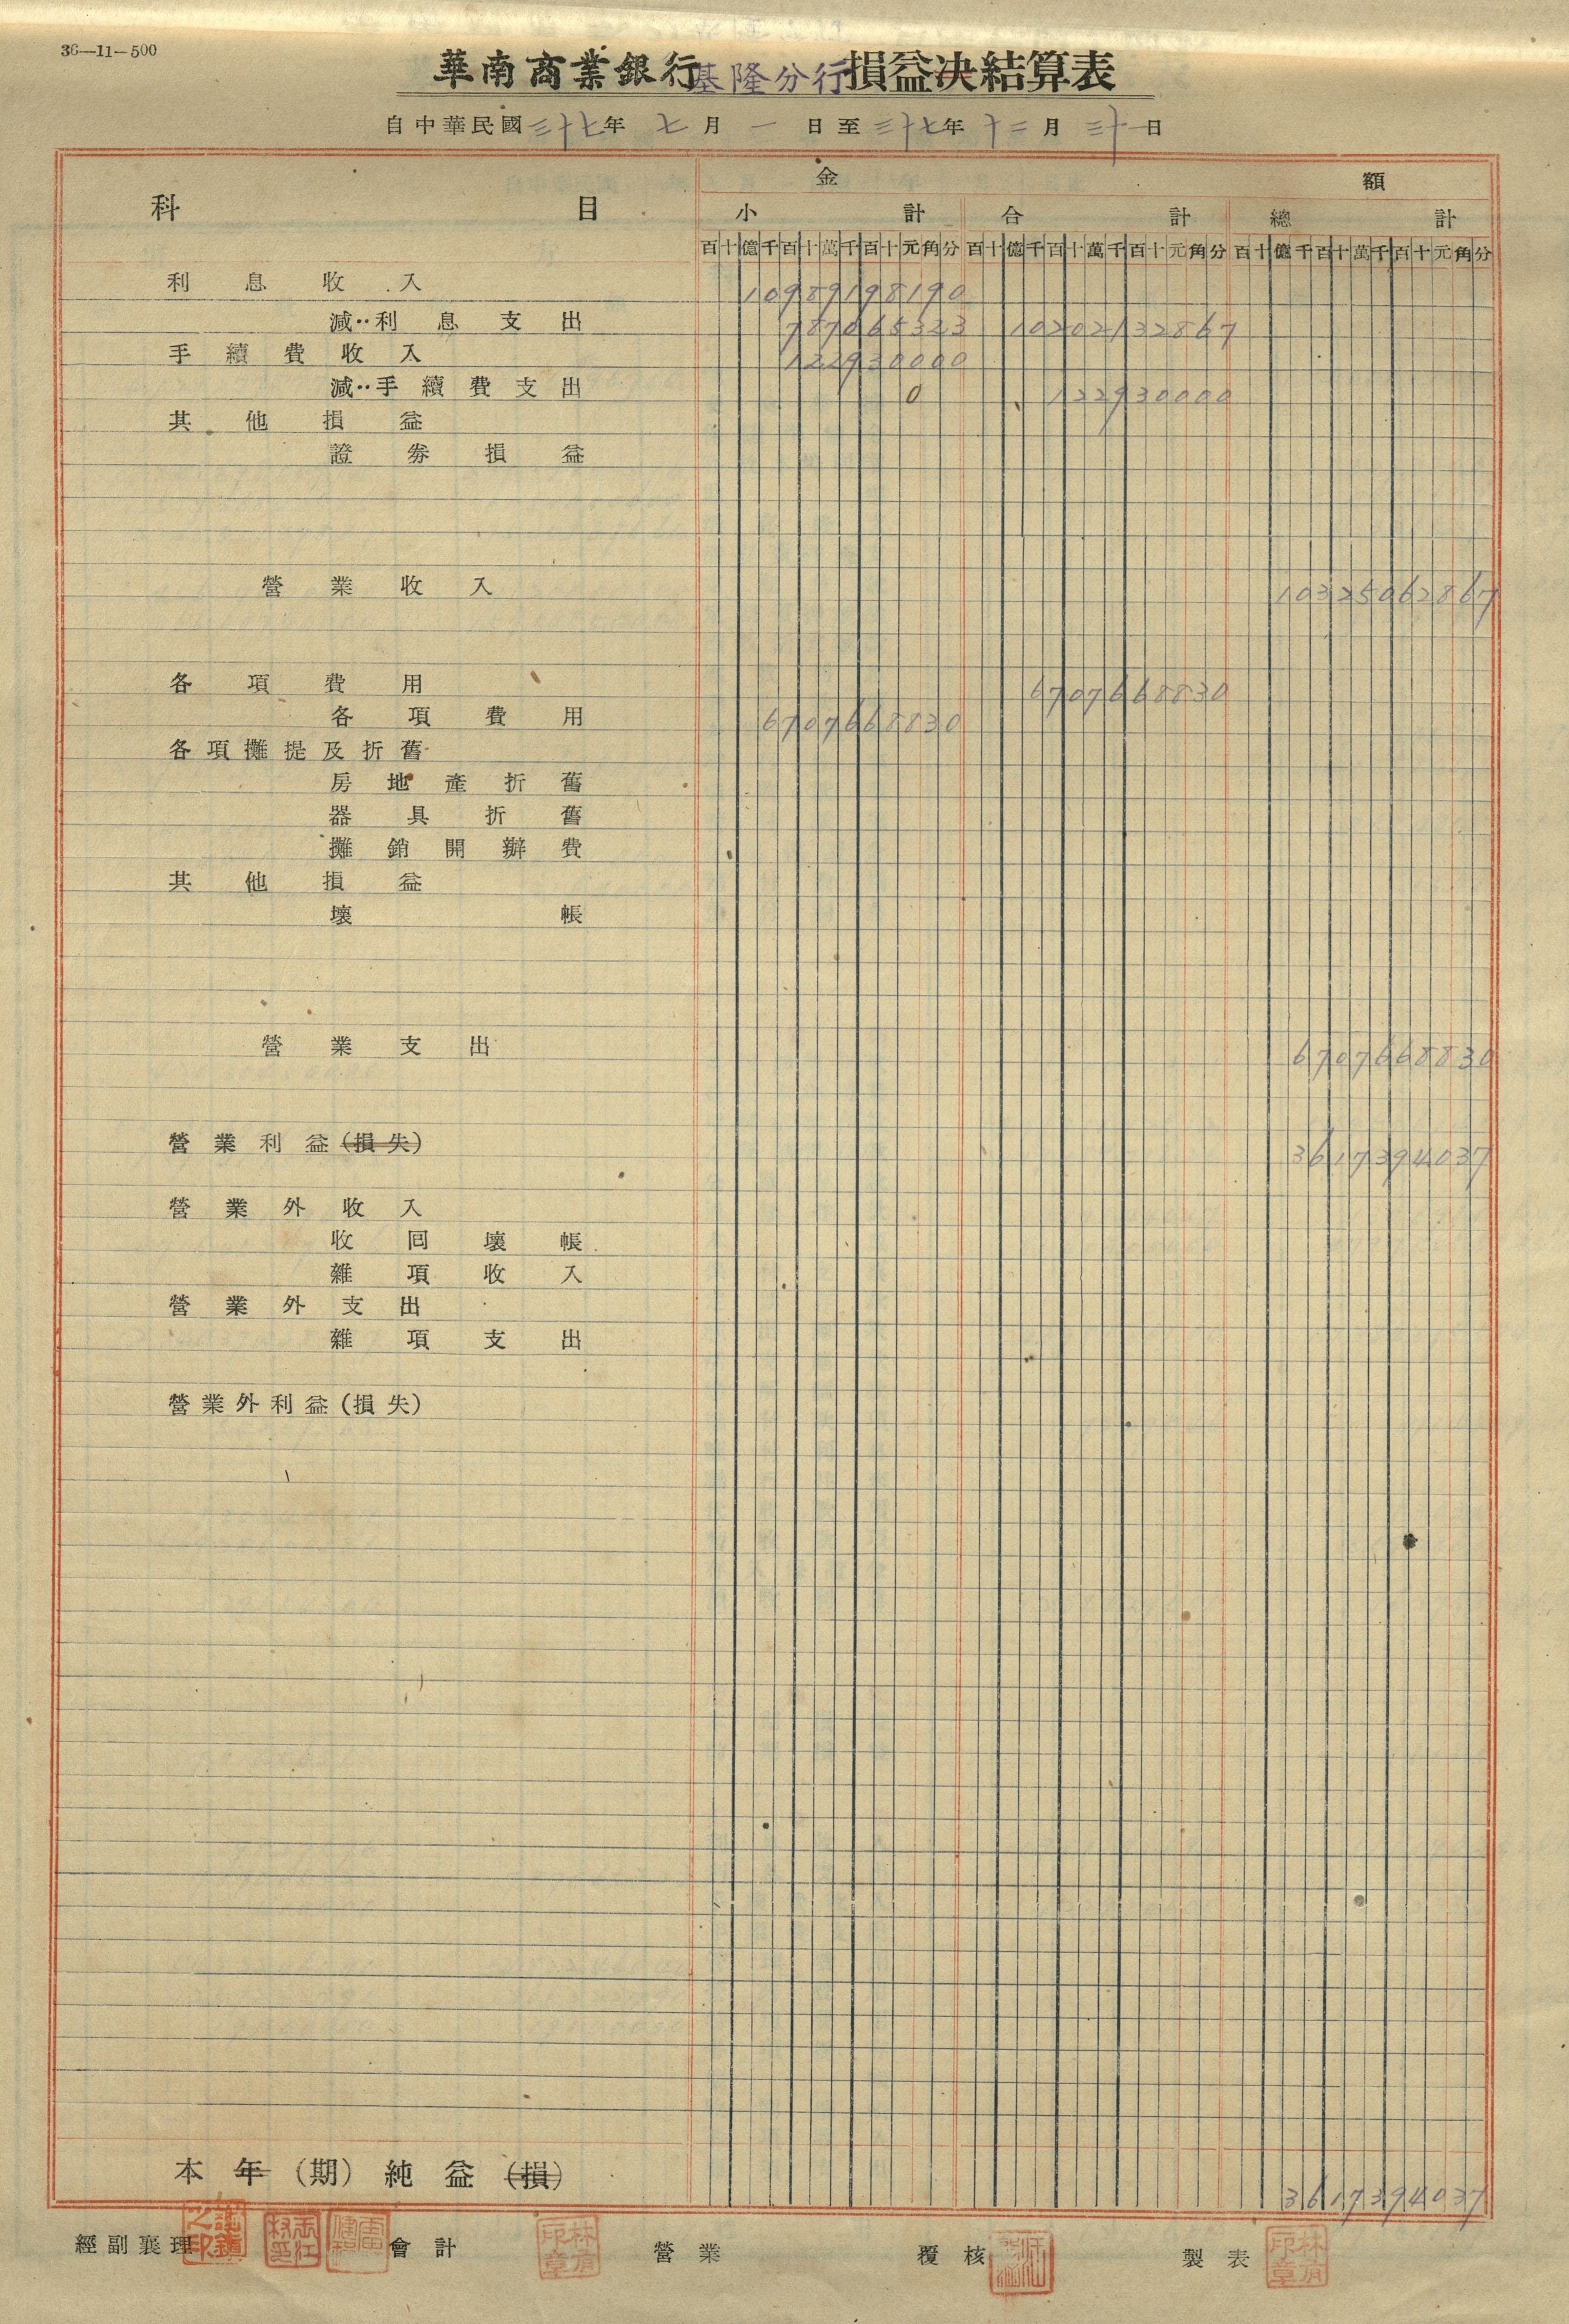 36—11—500
華南商業銀行基隆分行損益决結算表
自中華民國三十七年 七月 一 日至三十七年十二月三十一日
科 目 金 額
小 計 合 計 總 計
百十億千百十萬千百十元角分 百十億千百十萬千百十元角分 百十億千百十萬千百十元角分
利息收入 10989198190
減‥利息支出 787065323 10202132867
手續費收入 122930000
減‥手續費支出 0 122930000
其他損益
證券損益
營業收入 10325062867
各項費用 6707668830
各項費用 6707668830
各項攤提及折舊
房地產折舊
器具折舊
攤銷開辦費
其他損益
壞帳
營業支出 6707668830
營業利益(損失) 3617394037
營業外收入
收回壞帳
雜項收入
營業外支出
雜項支出
營業外利益(損失)
本年(期)純益(損) 3617394037
經副襄理 會計 營業 覆核 製表
林有印章
林有印章